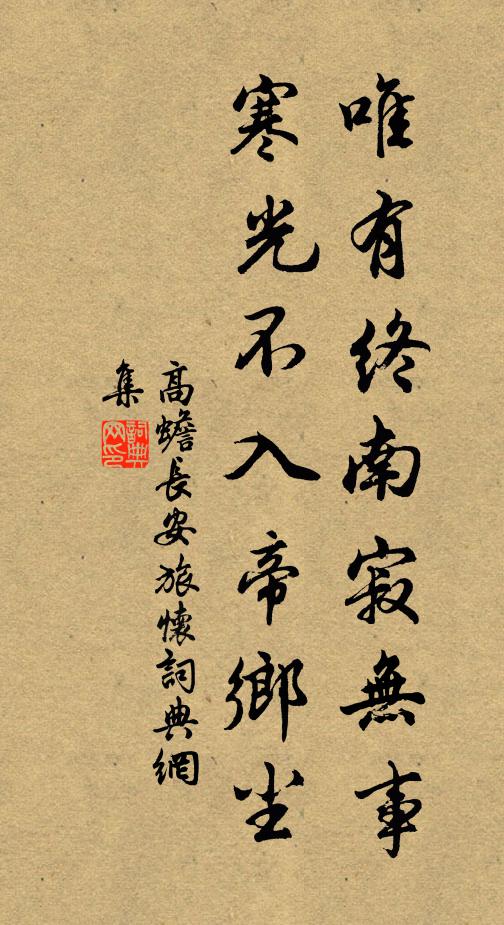 唯有終南寂無事
寒光不入帝鄉塵
高蟾長安旅懷詞典網
集
詞典網印